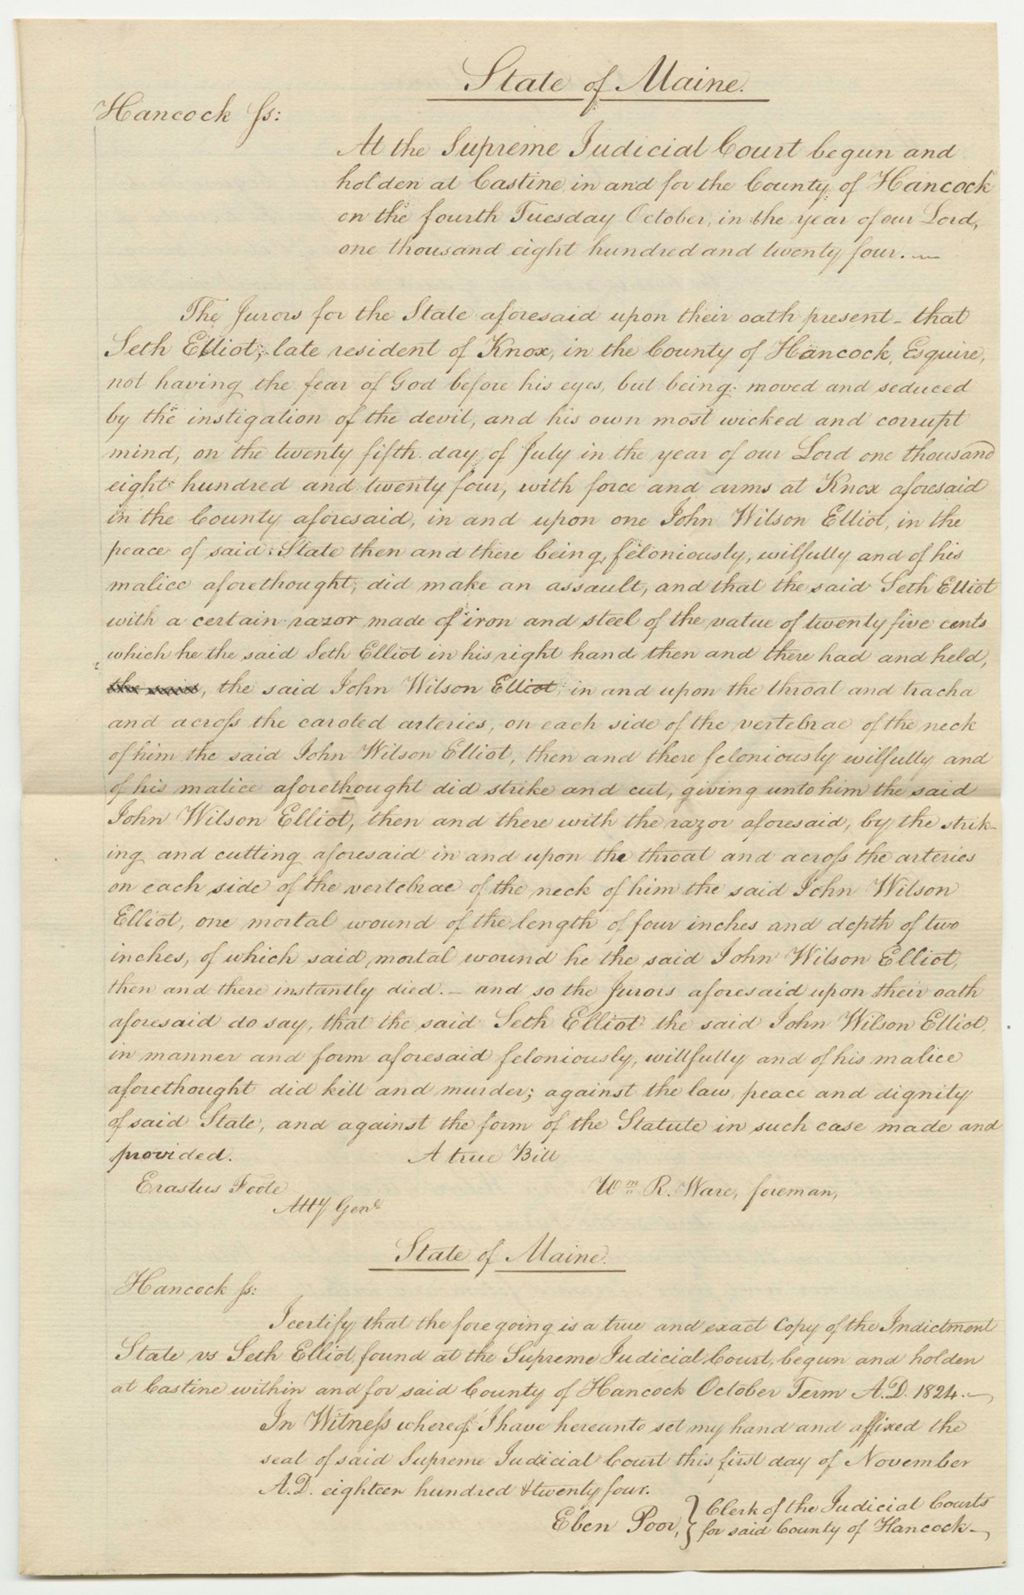 State of Maine.
Hancock ſs:
At the Supreme Judicial Court begun and
holden at Castine, in and for the County of Hancock
on the fourth Tuesday October, in the year of our Lord,
one thousand eight hundred and twenty four.—
The Jurors for the State aforesaid upon their oath present – that
Seth Elliot, late resident of Knox, in the County of Hancock, Esquire,
not having the fear of God before his eyes, but being moved and seduced
by the instigation of the devil, and his own most wicked and corrupt
mind, on the twenty fifth day of July in the year of our Lord one thousand
eight hundred and twenty four, with force and arms at Knox aforesaid
in the County aforesaid, in and upon one John Wilson Elliot, in the
peace of said State then and there being, feloniously, wilfully and of his
malice aforethought, did make an assault, and that the said Seth Elliot
with a certain razor made of iron and steel of the value of twenty five cents
which he the said Seth Elliot in his right hand then and there had and held,
the said, the said John Wilson Elliot, in and upon the throat and tracha
and acroſs the caroted arteries, on each side of the vertebrae of the neck
of him the said John Wilson Elliot, then and there feloniously wilfully and
of his malice aforethought did strike and cut, giving unto him the said
John Wilson Elliot, then and there with the razor aforesaid, by the strik-
ing and cutting aforesaid in and upon the throat and acroſs the arteries
on each side of the vertebrae of the neck of him the said John Wilson
Elliot, one mortal wound of the length of four inches and depth of two
inches, of which said mortal wound he the said John Wilson Elliot,
then and there instantly died.– and so the Jurors aforesaid upon their oath
aforesaid do say, that the said Seth Elliot the said John Wilson Elliot,
in manner and form aforesaid feloniously, willfully and of his malice
aforethought did kill and murder; against the law, peace and dignity
of said State, and against the form of the Statute in such case made and
provided. A true Bill
Erastus Foote Wm R. Ware, foreman,
Atty Genl
State of Maine.
Hancock ſs:
I certify that the foregoing is a true and exact Copy of the Indictment
State vs Seth Elliot, found at the Supreme Judicial Court, begun and holden
at Castine within and for said County of Hancock October Term A.D. 1824.—
In Witneſs whereof I have hereunto set my hand and affixed the
seal of said Supreme Judicial Court this first day of November
A.D. eighteen hundred & twenty four.
Eben Poor, } Clerk of the Judicial Courts
for said County of Hancock—